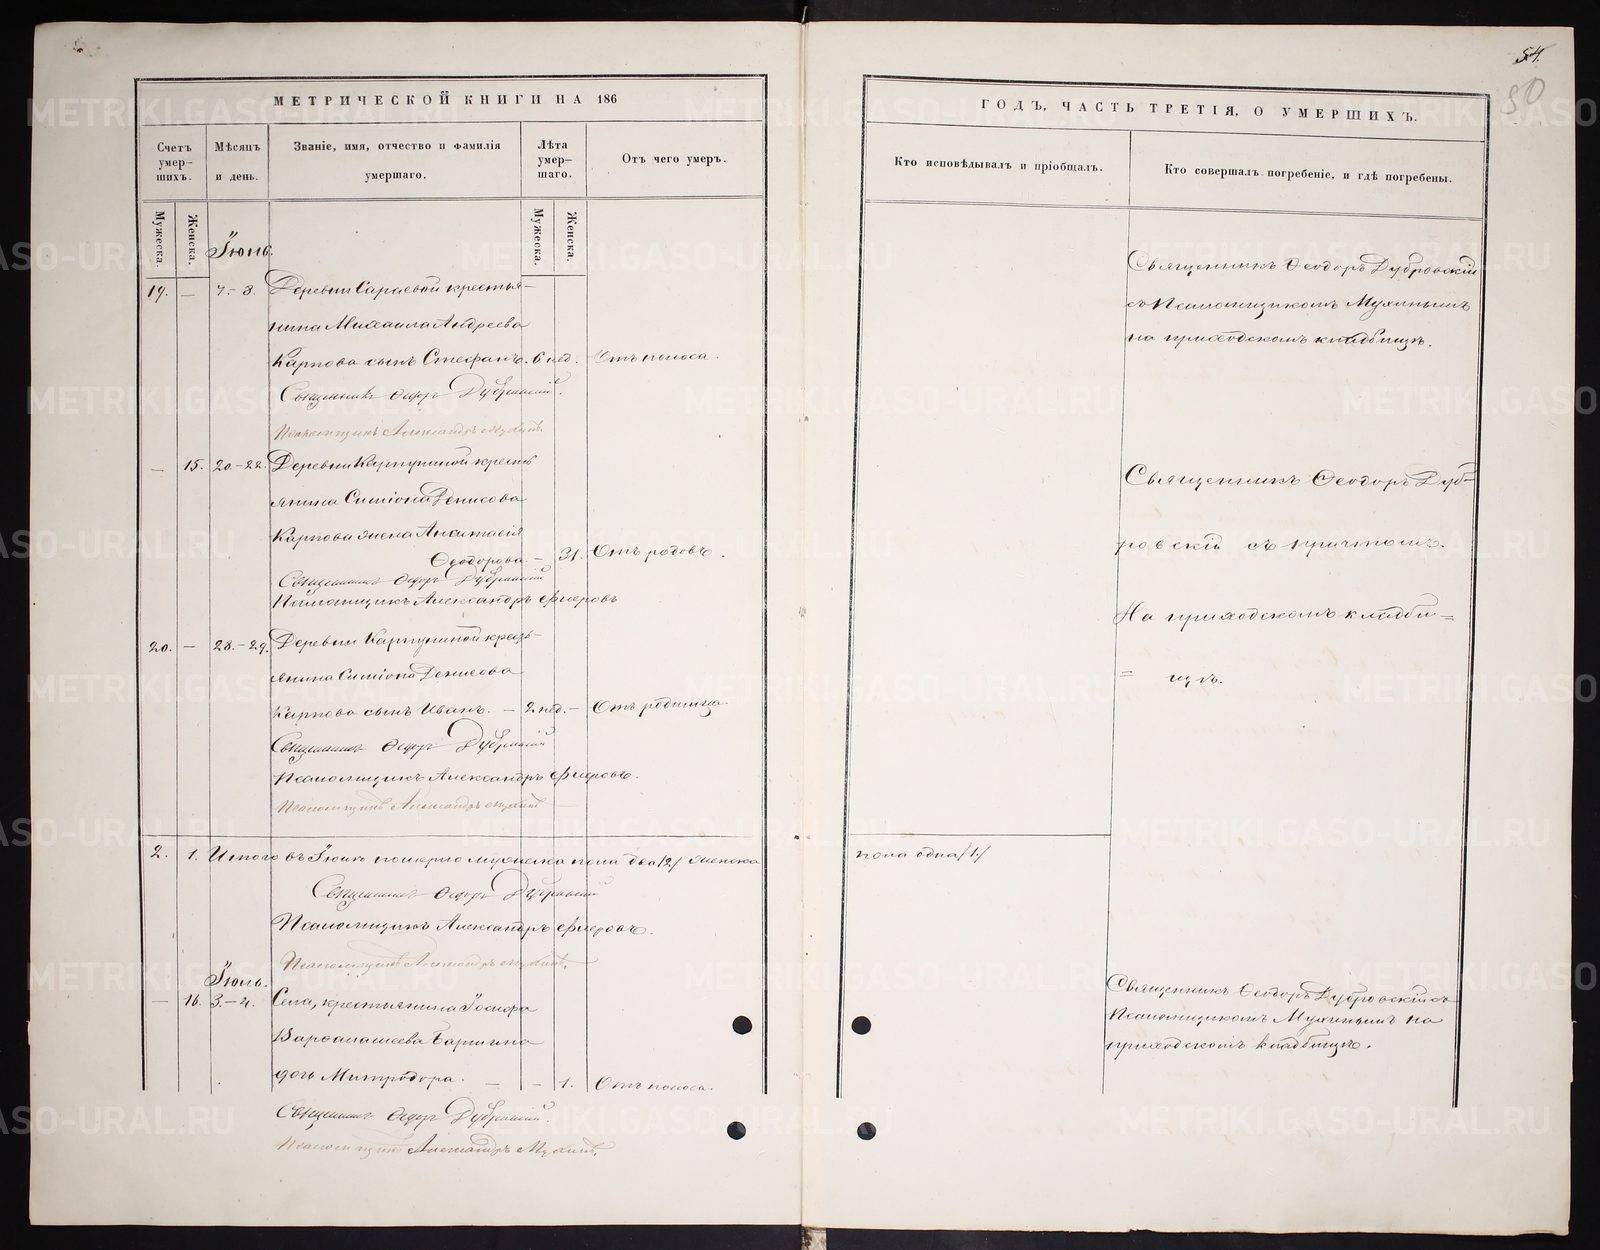 МЕТРИЧЕСКОЙ КНИГИ НА 186
Счетъ умер-шихъ.
Мѣсяцъ и день.
Званіе, имя, отчество и фамилія умершаго.
Лѣта умер-шаго.
Отъ чего умеръ.
Мужеска.
Женска.
Мужеска.
Женска.
Іюнь.
19. — 7.-8. Деревни Сараевой крестья-
нина Михаила Андреева
Карпова сынъ Стефанъ. 6 нед. Отъ поноса.
Священникъ Ѳеодоръ Дубровскій.
Псаломщикъ Александръ Мухинъ.
— 15. 20.-22. Деревни Карпуниной кресть
янина Симіона Денисова
Карпова жена Анастасія
Ѳеодорова — 31. Отъ родовъ.
Священникъ Ѳеодоръ Дубровскій
Псаломщикъ Александръ
20. — 28.-29. Деревни Карпуниной кресть-
янина Симіона Денисова
Карпова сынъ Иванъ. — 2 нед. — Отъ родимца.
Священникъ Ѳеодоръ Дубровскій
Псаломщикъ Александръ
Псаломщикъ Александръ Мухинъ
2. 1. Итого въ Іюнѣ померло мужеска пола два /2/ женска
Священникъ Ѳеодоръ Дубровскій
Псаломщикъ Александръ
Псаломщикъ Александръ Мухинъ.
Іюль.
— 16. 3.-4. Села, крестьянина Іосифа
Варѳаламеева
дочь Митродора. — — 1. Отъ поноса.
Священникъ Ѳеодоръ Дубровскій.
Псаломщикъ Александръ Мухинъ.
54.
80
ГОДЪ, ЧАСТЬ ТРЕТІЯ, О УМЕРШИХЪ.
Кто исповѣдывалъ и пріобщалъ.
Кто совершалъ погребеніе, и гдѣ погребены.
Священникъ Ѳеодоръ Дубровскій
съ Псаломщикомъ Мухинымъ
на приходскомъ кладбищѣ.
Священникъ Ѳеодоръ Дуб-
ровскій съ причтомъ.
На приходскомъ кладби=
= щѣ.
пола одна /1./
Священникъ Ѳеодоръ Дубровскій съ
Псаломщикомъ Мухинымъ на
приходскомъ кладбищѣ.
METRIKI.GASO-URAL.RU